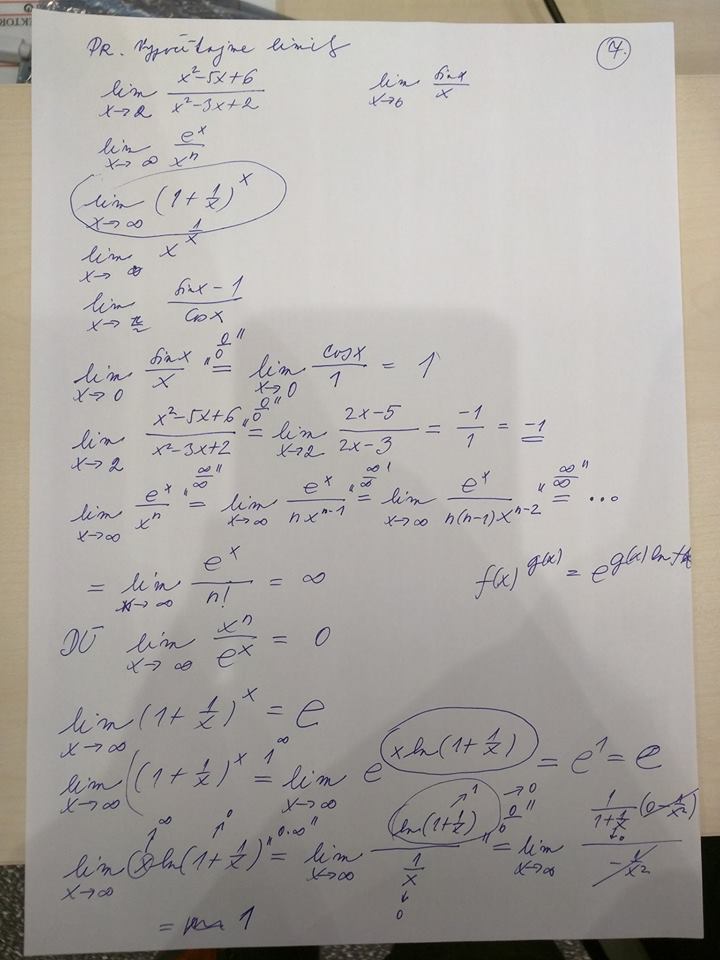 KTOR
PR. Vypočítajme limity
7.
lim x→2 (x²-5x+6)/(x²-3x+2)   lim x→0 sinx/x
lim x→∞ e^x/x^n
lim x→∞ (1+1/x)^x
lim x→∞ x^(1/x)
lim x→π/2 (sinx-1)/cosx
lim x→0 sinx/x "0/0" = lim x→0 cosx/1 = 1
lim x→2 (x²-5x+6)/(x²-3x+2) "0/0" = lim x→2 (2x-5)/(2x-3) = -1/1 = -1
lim x→∞ e^x/x^n "∞/∞" = lim x→∞ e^x/(nx^(n-1)) "∞/∞" = lim x→∞ e^x/(n(n-1)x^(n-2)) "∞/∞" = ...
= lim x→∞ e^x/n! = ∞   f(x)^g(x) = e^(g(x) ln f(x)
DÚ lim x→∞ x^n/e^x = 0
lim x→∞ (1+1/x)^x = e
lim x→∞ ((1+1/x)^x 1^∞ = lim x→∞ e^(x ln(1+1/x)) = e^1 = e
lim x→∞ (x) ln(1+1/x) "0·∞" = lim x→∞ ln(1+1/x)/(1/x) "0/0" = lim x→∞ (1/(1+1/x) (0-1/x²))/(-1/x²)
= 1